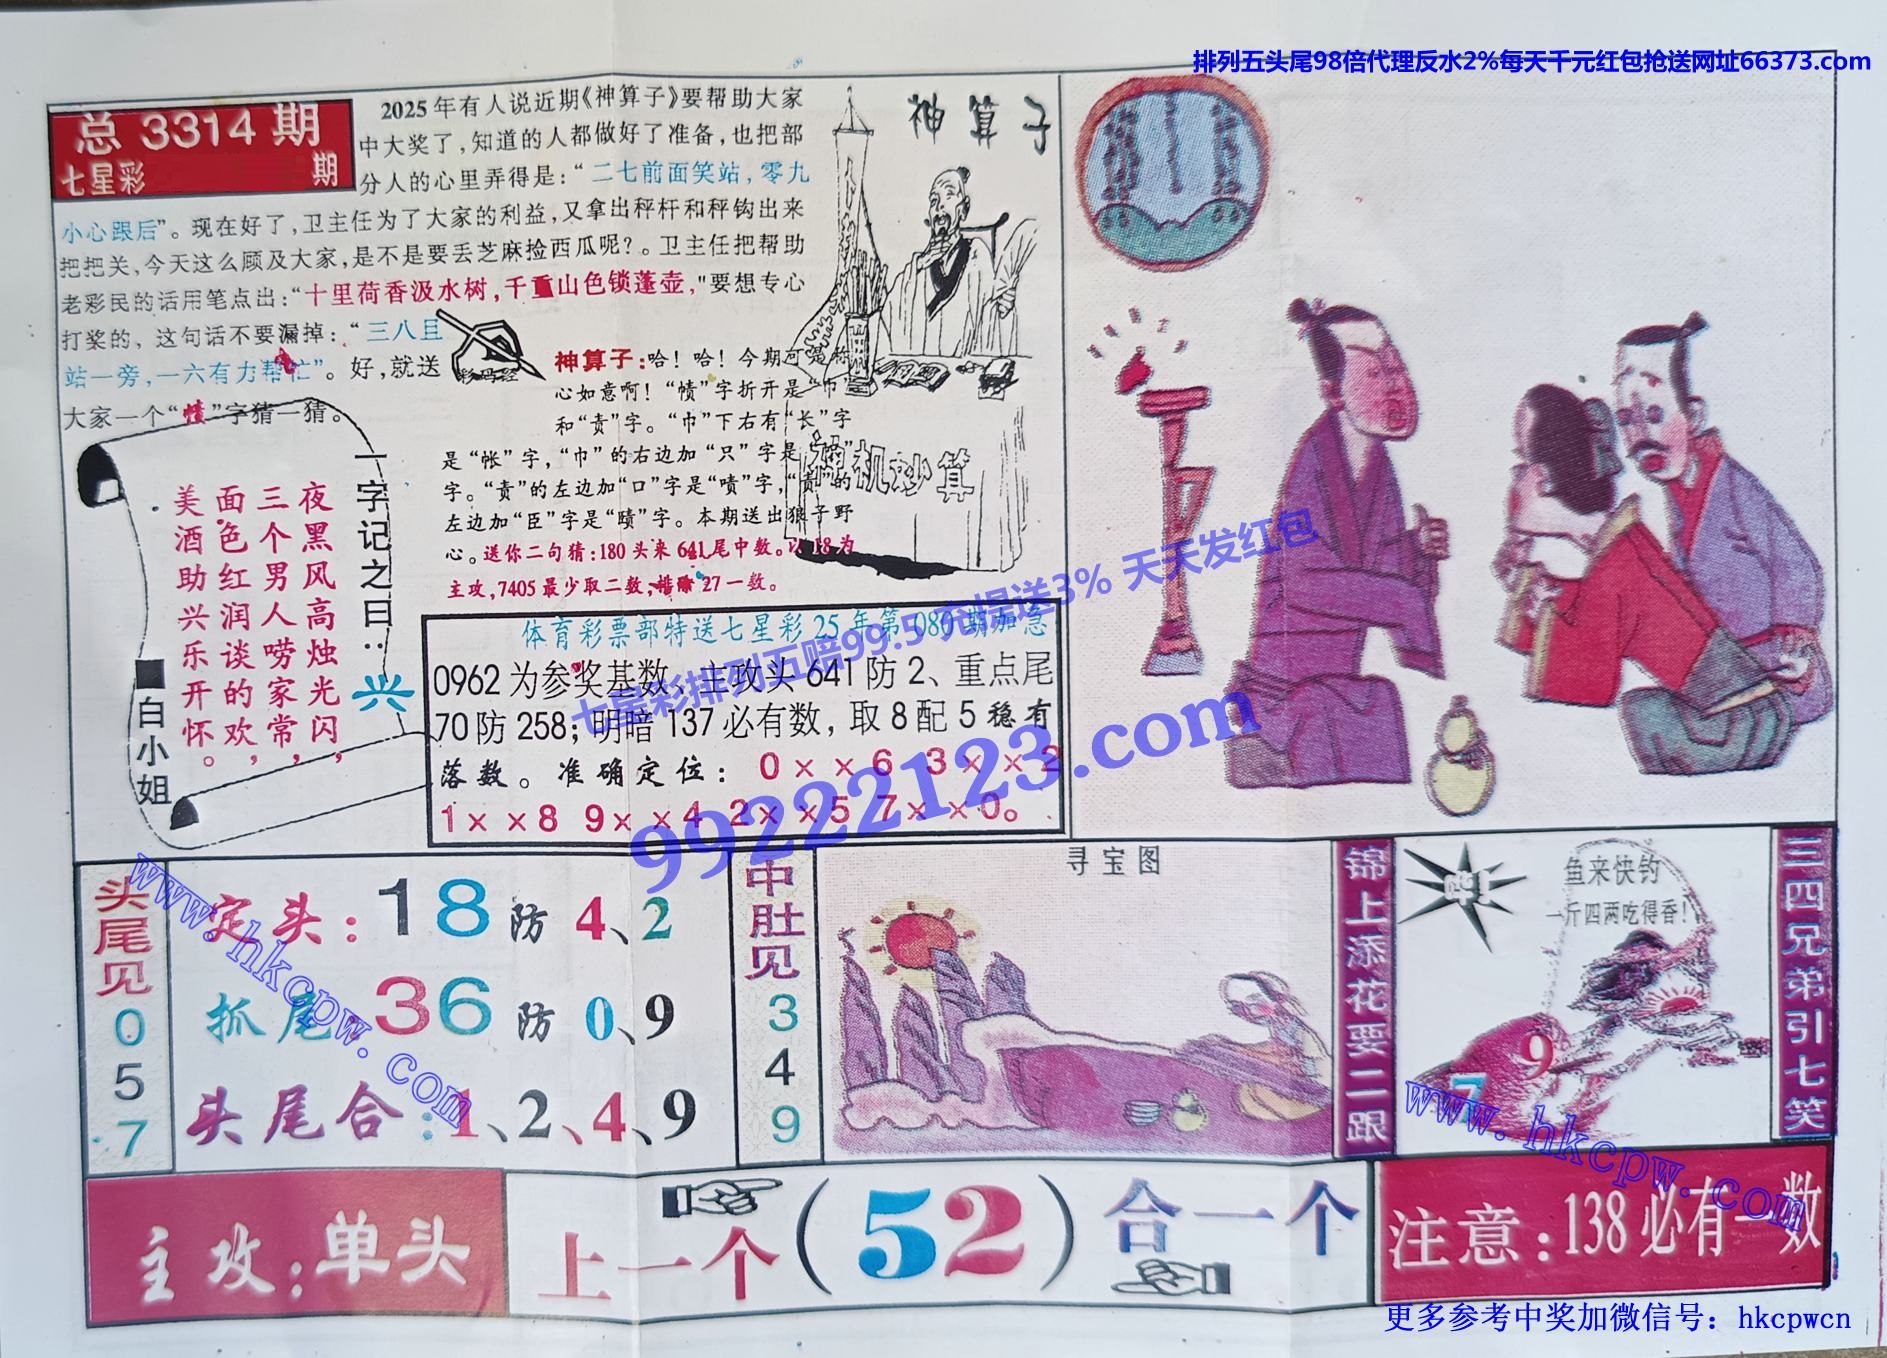 排列五头尾98倍代理反水2%每天千元红包抢送网址66373.com
总3314期
七星彩 期
2025年有人说近期《神算子》要帮助大家
中大奖了,知道的人都做好了准备,也把部
分人的心里弄得是:“二七前面笑站,零九
小心跟后”。现在好了,卫主任为了大家的利益,又拿出秤杆和秤钩出来
把把关,今天这么顾及大家,是不是要丢芝麻捡西瓜呢?。卫主任把帮助
老彩民的话用笔点出:“十里荷香汲水树,千重山色锁蓬壶,"要想专心
打奖的,这句话不要漏掉:“三八且
站一旁,一六有力帮忙”。好,就送
大家一个“愦”字猜一猜。
彩码经
神算子
神机妙算
神算子:哈!哈!今期可是称
心如意啊!“愦”字折开是“巾”
和“贵”字。“巾”下右有“长”字
是“帐”字,“巾”的右边加“只”字是
字。“贵”的左边加“口”字是“啧”字,“责”的
左边加“臣”字是“赜”字。本期送出狼子野
心。送你二句猜:180头来641尾中数。以18为
主攻,7405最少取二数,排除27一数。
一字记之曰:兴
夜黑风高烛光闪,
三个男人唠家常,
面色红润谈的欢,
美酒助兴乐开怀。
■白小姐
体育彩票部特送七星彩25年第080期加急
0962为参奖基数、主攻头641防2、重点尾
70防258;明暗137必有数,取8配5稳有
落数。准确定位:0××6 3××2
1××8 9××4 2××5 7××0。
七星彩排列五赔99.5 充提送3% 天天发红包
99222123.com
头尾见057
定头:18防4、2
抓尾:36防0、9
头尾合:1、2、4、9
www.hkcpw.com
中肚见349
寻宝图
锦上添花要二跟
鱼来快钓
一斤四两吃得香!
9
7
三四兄弟引七笑
www.hkcpw.com
主攻:单头
上一个(52)合一个
注意:138必有一数
更多参考中奖加微信号:hkcpwcn